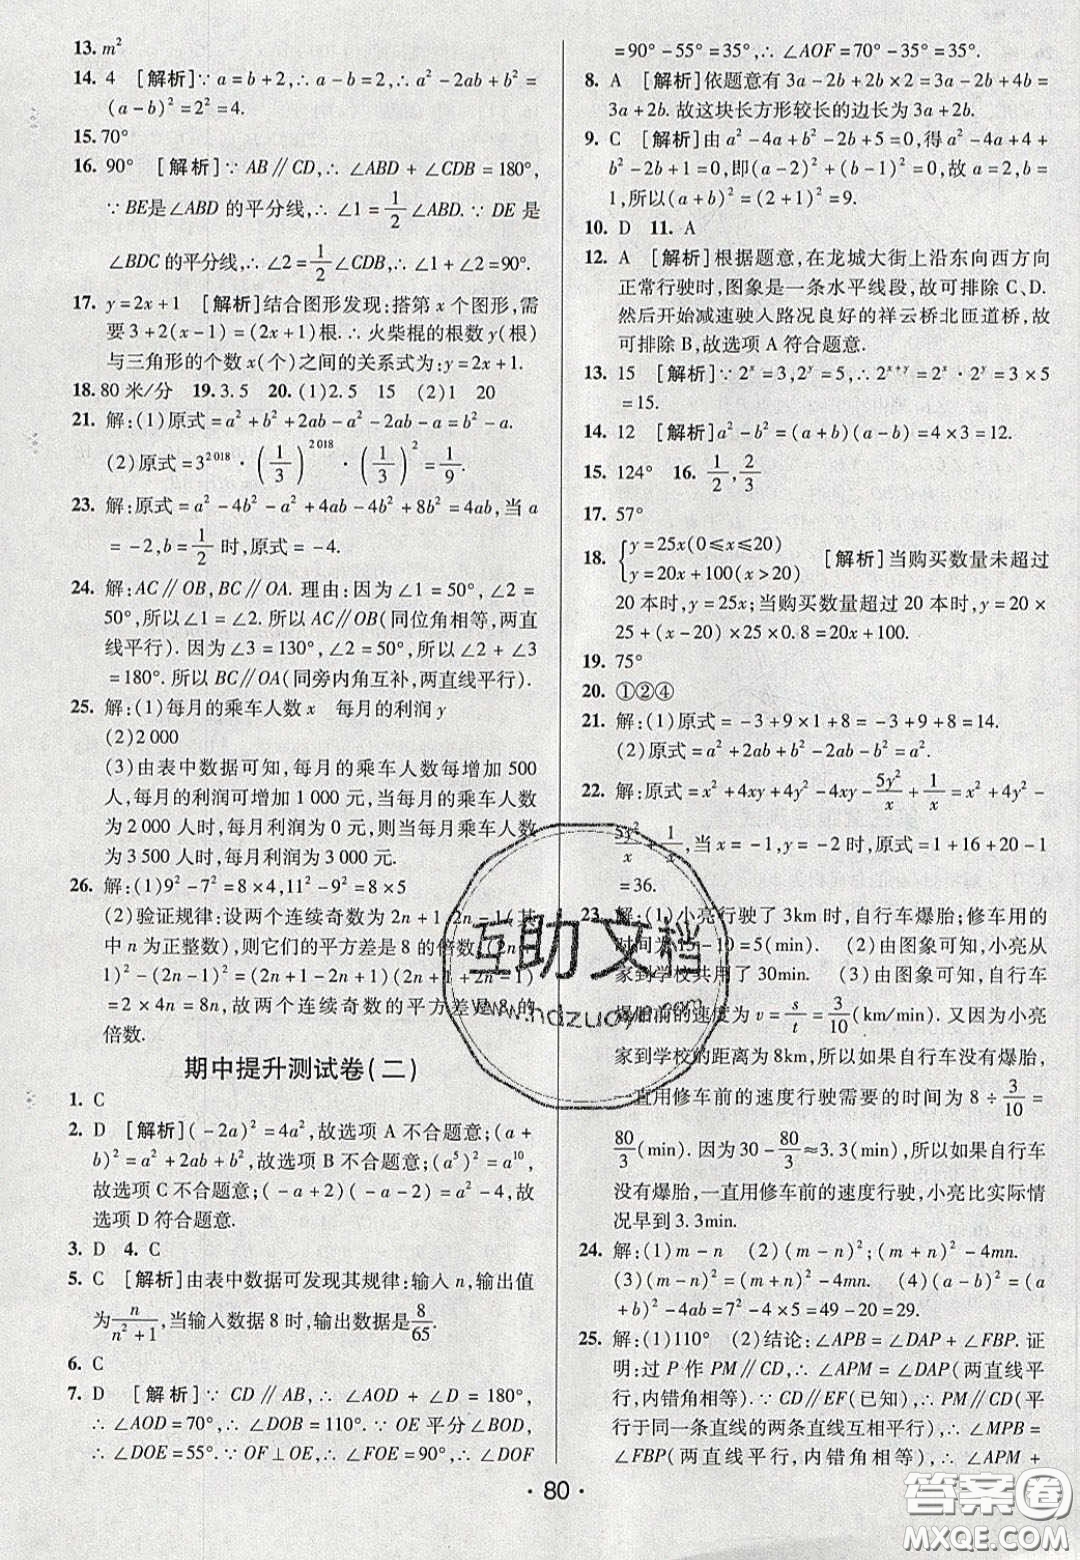 13. m²
14. 4 [解析]∵a=b+2,∴a-b=2,∴a²-2ab+b²=
(a-b)²=2²=4.
15. 70°
16. 90° [解析]∵AB∥CD,∴∠ABD+∠CDB=180°,
∵BE是∠ABD的平分线,∴∠1=1/2∠ABD.∵DE是
∠BDC的平分线,∴∠2=1/2∠CDB,∴∠1+∠2=90°.
17. y=2x+1 [解析]结合图形发现:搭第x个图形,需
要3+2(x-1)=(2x+1)根.∴火柴棍的根数y(根)
与三角形的个数x(个)之间的关系式为:y=2x+1.
18. 80米/分 19. 3.5 20. (1)2.5 15 (2)1 20
21. 解:(1)原式=a²+b²+2ab-a²-2ab-a=b²-a.
(2)原式=3²⁰¹⁸·(1/3)²⁰¹⁸·(1/3)²=1/9.
23. 解:原式=a²-4b²-a²+4ab-4b²+8b²=4ab,当a
=-2,b=1/2时,原式=-4.
24. 解:AC∥OB,BC∥OA.理由:因为∠1=50°,∠2=
50°,所以∠1=∠2.所以AC∥OB(同位角相等,两直
线平行).因为∠3=130°,∠2=50°,所以∠2+∠3
=180°.所以BC∥OA(同旁内角互补,两直线平行).
25. 解:(1)每月的乘车人数x 每月的利润y
(2)2 000
(3)由表中数据可知,每月的乘车人数每增加500
人,每月的利润可增加1 000元,当每月的乘车人数
为2 000人时,每月利润为0元,则当每月乘车人数
为3 500人时,每月利润为3 000元.
26. 解:(1)9²-7²=8×4,11²-9²=8×5
(2)验证规律:设两个连续奇数为2n+1,2n-1(其
中n为正整数),则它们的平方差是8的倍数.(2n+
1)²-(2n-1)²=(2n+1-2n+1)(2n+1+2n-1)
=2×4n=8n,故两个连续奇数的平方差是8的
倍数.
期中提升测试卷(二)
1. C
2. D [解析](-2a)²=4a²,故选项A不合题意;(a+
b)²=a²+2ab+b²,故选项B不合题意;(a⁵)²=a¹⁰,
故选项C不合题意;(-a+2)(-a-2)=a²-4,故
选项D符合题意.
3. D 4. C
5. C [解析]由表中数据可发现其规律:输入n,输出值
为n/(n²+1),当输入数据8时,输出数据是8/65.
6. C
7. D [解析]∵CD∥AB,∴∠AOD+∠D=180°,
∴∠AOD=70°,∴∠DOB=110°.∵OE平分∠BOD,
∴∠DOE=55°.∵OF⊥OE,∴∠FOE=90°,∴∠DOF
=90°-55°=35°,∴∠AOF=70°-35°=35°.
8. A [解析]依题意有3a-2b+2b×2=3a-2b+4b=
3a+2b.故这块长方形较长的边长为3a+2b.
9. C [解析]由a²-4a+b²-2b+5=0,得a²-4a+4+
b²-2b+1=0,即(a-2)²+(b-1)²=0,故a=2,b=
1,所以(a+b)²=(2+1)²=9.
10. D 11. A
12. A [解析]根据题意,在龙城大街上沿东向西方向
正常行驶时,图象是一条水平线段,故可排除C、D.
然后开始减速驶入路况良好的祥云桥北匝道桥,故
可排除B,故选项A符合题意.
13. 15 [解析]∵2ˣ=3,2ʸ=5,∴2ˣ⁺ʸ=2ˣ·2ʸ=3×5
=15.
14. 12 [解析]a²-b²=(a+b)(a-b)=4×3=12.
15. 124° 16. 1/2,2/3
17. 57°
18. {y=25x(0≤x≤20) y=20x+100(x>20) [解析]当购买数量未超过
20本时,y=25x;当购买数量超过20本时,y=20×
25+(x-20)×25×0.8=20x+100.
19. 75°
20. ①②④
21. 解:(1)原式=-3+9×1+8=-3+9+8=14.
(2)原式=a²+2ab+b²-2ab-b²=a².
22. 解:原式=x²+4xy+4y²-4xy-5y²/x+1/x=x²+4y²-
5y²/x+1/x,当x=-1,y=-2时,原式=1+16+20-1
=36.
23. 解:(1)小亮行驶了3km时,自行车爆胎;修车用的
时间为15-10=5(min). (2)由图象可知,小亮从
家到学校共用了30min. (3)由图象可知,自行车
爆胎前的速度为v=s/t=3/10(km/min).又因为小亮
家到学校的距离为8km,所以如果自行车没有爆胎,
一直用修车前的速度行驶需要的时间为8÷3/10=
80/3(min).因为30-80/3≈3.3(min),所以如果自行车
没有爆胎,一直用修车前的速度行驶,小亮比实际情
况早到3.3min.
24. 解:(1)m-n (2)(m-n)²;(m+n)²-4mn.
(3)(m-n)²=(m+n)²-4mn. (4)(a-b)²=(a
+b)²-4ab=7²-4×5=49-20=29.
25. 解:(1)110° (2)结论:∠APB=∠DAP+∠FBP.证
明:过P作PM∥CD,∴∠APM=∠DAP(两直线平
行,内错角相等).∵CD∥EF(已知),∴PM∥CD(平
行于同一条直线的两条直线互相平行),∴∠MPB=
∠FBP(两直线平行,内错角相等),∴∠APM+
· 80 ·
互助文档
www.hdzuoye.com
答案圈
MXQE.COM